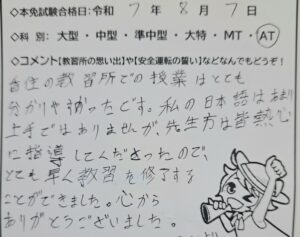 ◇本免試験合格日：令和 7 年 8 月 7 日
◇科 別・大型・中型・準中型・大特・MT・AT
◇コメント【教習所の思い出】や【安全運転の誓い】などなんでもどうぞ！
の教習所での授業はとても
分かりやすかったです。私の日本語はあまり
上手ではありませんが、先生方は皆熱心
に指導してくださったので、
とても早く教習を修了する
ことができました。心から
ありがとうございました。
より